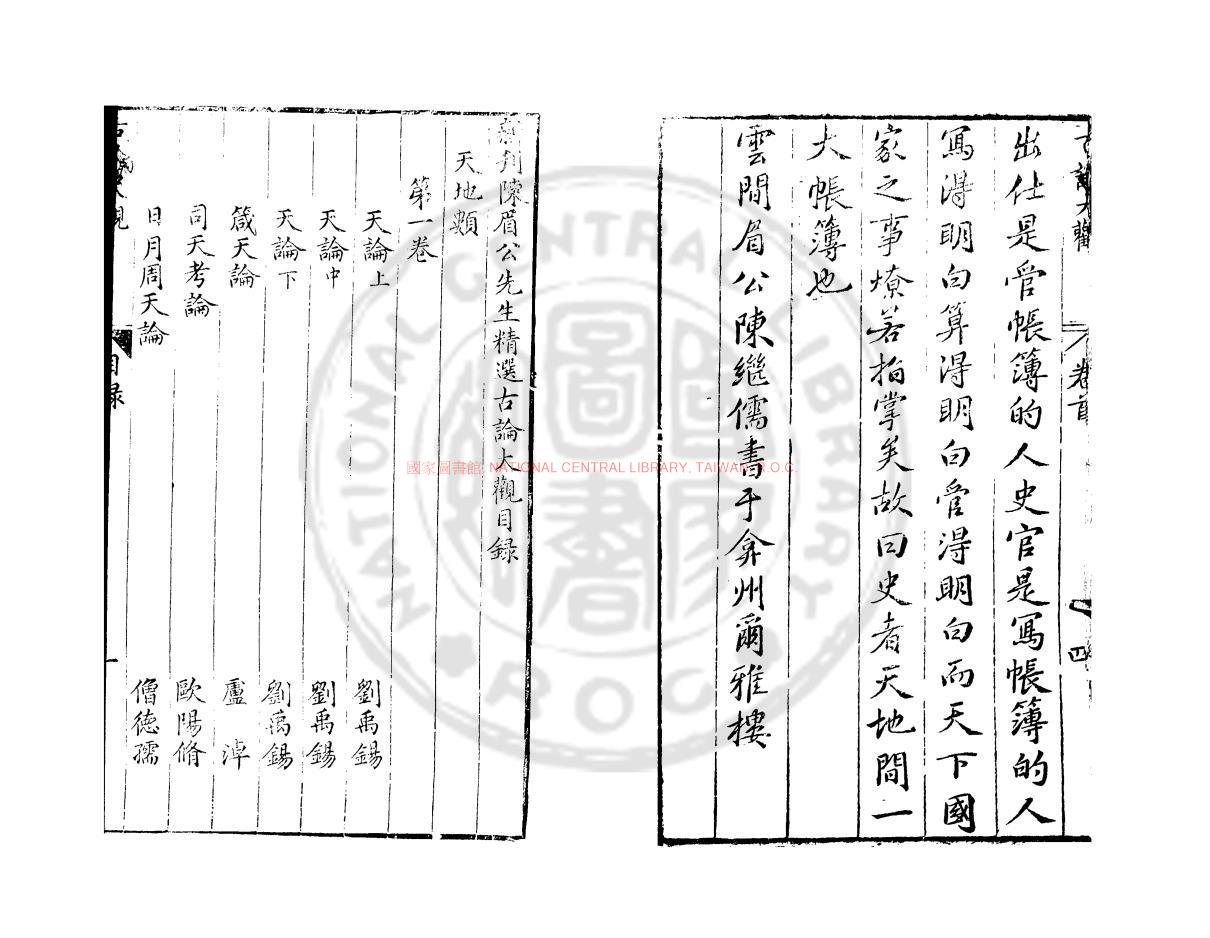 古論大觀
卷首
四
出仕是管帳簿的人史官是寫帳簿的人
寫得明白算得明白管得明白而天下國
家之事燎若指掌矣故曰史者天地間一
大帳簿也
雲間眉公陳繼儒書于弇州爾雅樓
新刋陳眉公先生精選古論大觀目録
天地類
第一卷
天論上 劉禹錫
天論中 劉禹錫
天論下 劉禹錫
箴天論 盧淖
司天考論 歐陽脩
日月周天論 僧德孺
目録
一
國家圖書館 NATIONAL CENTRAL LIBRARY, TAIWAN, R.O.C.
NATIONAL CENTRAL LIBRARY
ROC